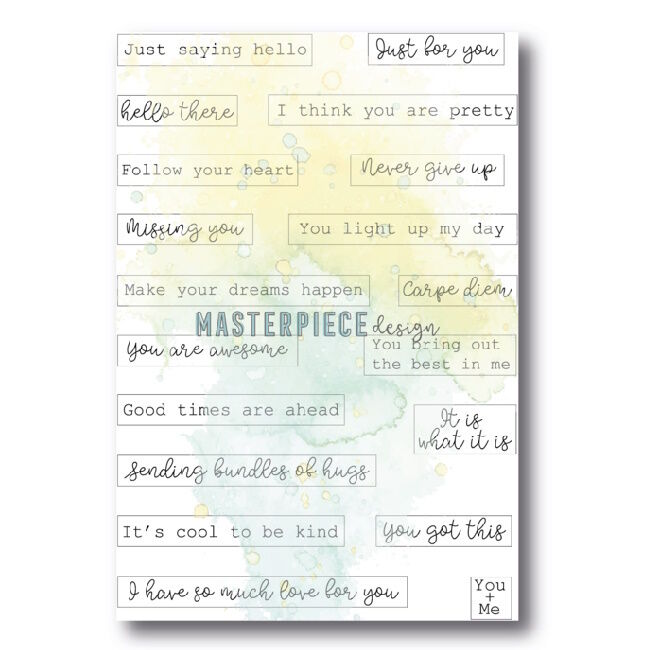 Just saying hello
Just for you
hello there
I think you are pretty
Follow your heart
Never give up
Missing you
You light up my day
Make your dreams happen
Carpe diem
MASTERPIECE design
You are awesome
You bring out
the best in me
Good times are ahead
It is
what it is
Sending bundles of hugs
It's cool to be kind
You got this
I have so much love for you
You
+
Me